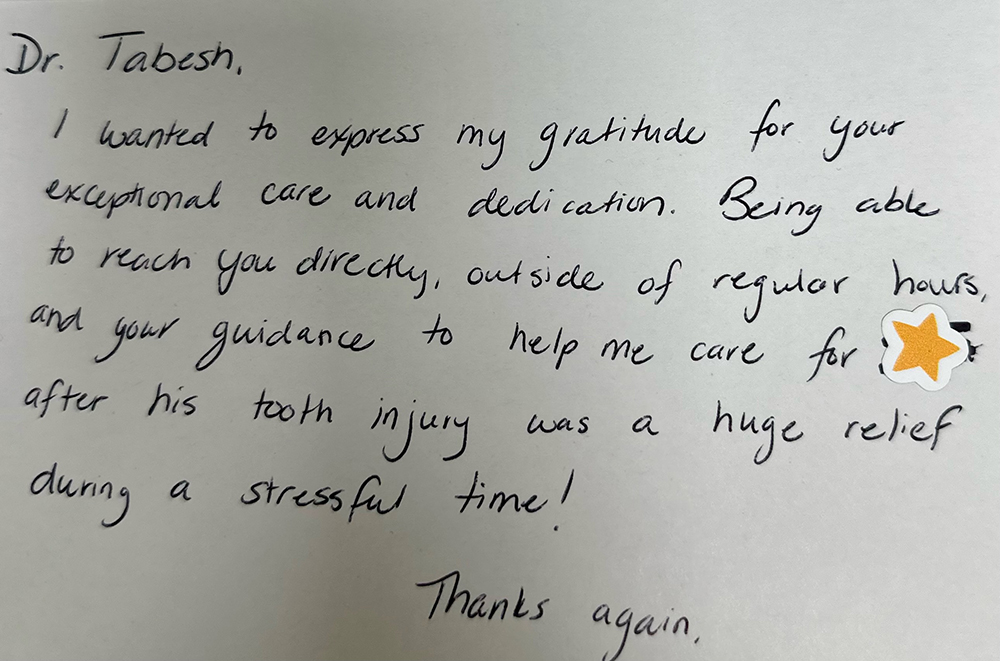 Dr. Tabesh,
I wanted to express my gratitude for your
exceptional care and dedication. Being able
to reach you directly, outside of regular hours,
and your guidance to help me care for
after his tooth injury was a huge relief
during a stressful time!
Thanks again,